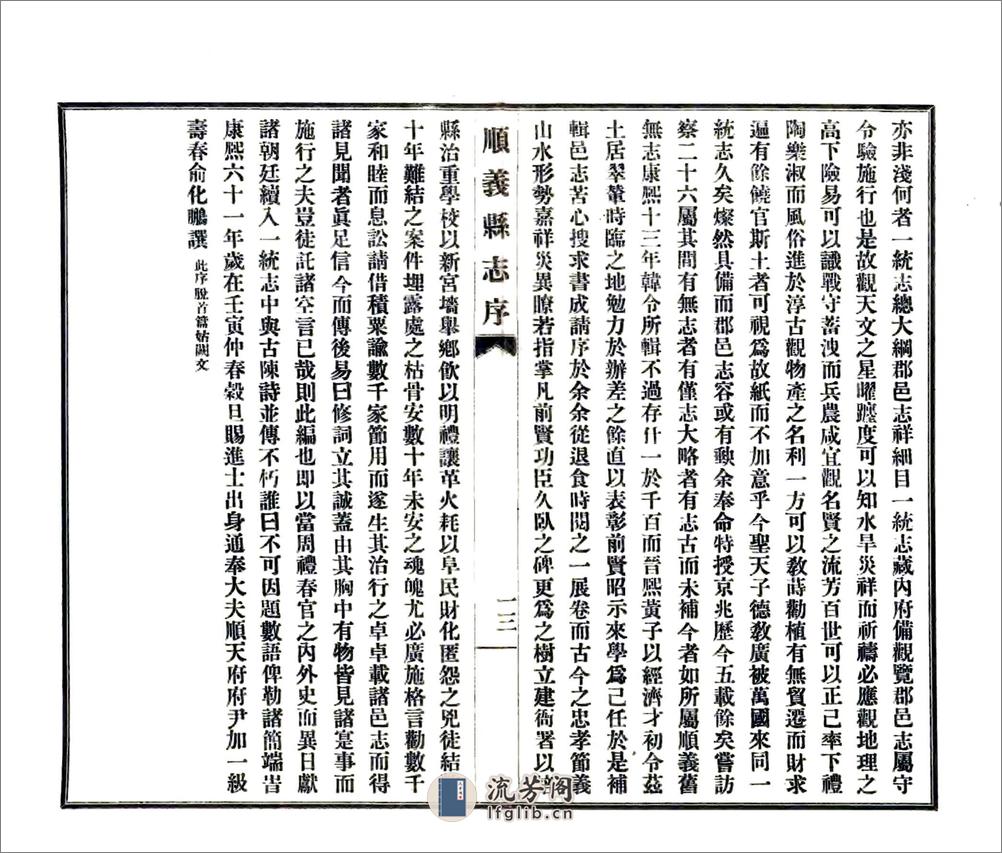 亦非淺何者一統志總大綱郡邑志祥細目一統志藏內府備觀覽郡邑志屬守
令驗施行也是故觀天文之星曜躔度可以知水旱災祥而祈禱必應觀地理之
高下險易可以識戰守蓄洩而兵農咸宜觀名賢之流芳百世可以正己率下禮
陶樂淑而風俗進於淳古觀物產之名利一方可以敎蒔勸植有無貿遷而財求
逼有餘饒官斯土者可視爲故紙而不加意乎今聖天子德敎廣被萬國來同一
統志久矣燦然具備而郡邑志容或有缺余奉命特授京兆歷今五載餘矣嘗訪
察二十六屬其間有無志者有僅志大略者有志古而未補今者如所屬順義舊
無志康熙十三年韓令所輯不過存什一於千百而晉熙黃子以經濟才初令茲
土居翠輦時臨之地勉力於辦差之餘直以表彰前賢昭示來學爲己任於是補
輯邑志苦心搜求書成請序於余余從退食時閱之一展卷而古今之忠孝節義
山水形勢嘉祥災異瞭若指掌凡前賢功臣久臥之碑更爲之樹立建衙署以
順義縣志序
二三
縣治重學校以新宮墻舉鄉飲以明禮讓革火耗以阜民財化匿怨之兇徒結
十年難結之案件埋露處之枯骨安數十年未安之魂魄尤必廣施格言勸數千
家和睦而息訟請借積粟諭數千家節用而遂生其治行之卓卓載諸邑志而得
諸見聞者眞足信今而傳後易曰修詞立其誠蓋由其胸中有物皆見諸寔事而
施行之夫豈徒託諸空言已哉則此編也即以當周禮春官之內外史而異日獻
諸朝廷續入一統志中與古陳詩並傳不朽誰曰不可因題數語俾勒諸簡端旹
康熙六十一年歲在壬寅仲春穀旦賜進士出身通奉大夫順天府府尹加一級
壽春俞化鵬譔 此序脫首篇姑闕文
流芳阁
lfglib.cn